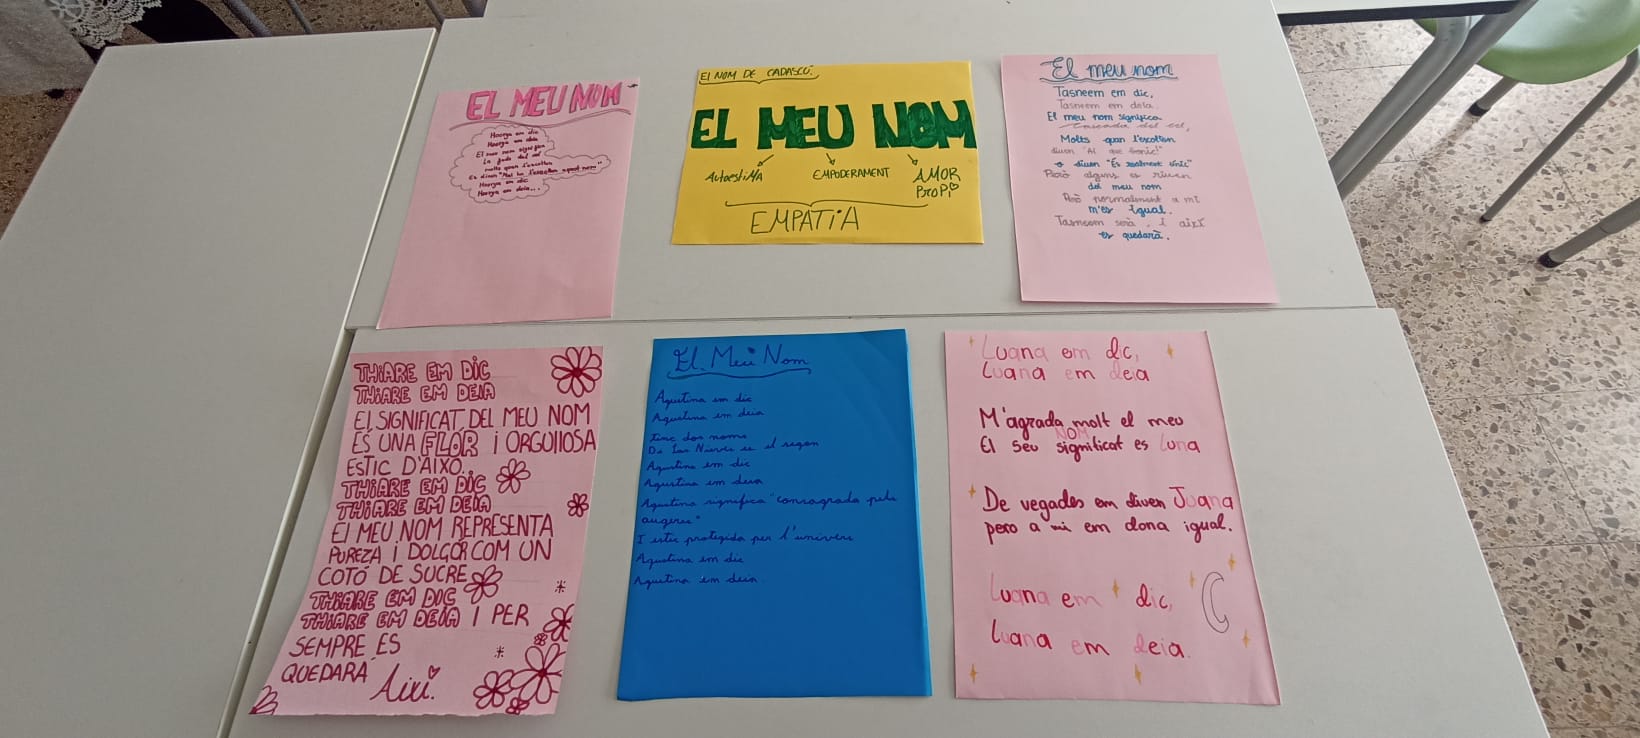 EL MEU NOM
Hoorya em dic
Hoorya em deia
El meu nom significa
La fada del cel
molts quan l'escolten
Es diuen "Mai he l'escoltat aquest nom"
Hoorya em dic
Hoorya em deia...
El NOM DE CADASCÚ.
EL MEU NOM
AutoestiMA
EMPODERAMENT
AMOR
ProPi
EMPATiA
El meu nom
Tasneem em dic,
Tasneem em deia.
El meu nom significa
Cascada del cel,
Molts quan l'escolten
diuen "Ai que bonic!"
o diuen "És realment únic"
Però alguns es riuen
del meu nom
Però normalment a mi
m'és igual.
Tasneem serà, i així
es quedarà.
THiARE EM DiC
THiARE EM DEiA
El SiGNiFiCAT DEL MEU NOM
ÉS UNA FLOR i ORGUllOSA
ESTiC D'AiXÒ.
THiARE EM DiC
THiARE EM DEiA
El MEU NOM REPRESENTA
PUREZA i DOLÇOR COM UN
COTÓ DE SUCRE
THiARE EM DiC
THiARE EM DEiA I PER
SEMPRE ES
QUEDARÀ Aixi.
El Meu Nom
Agustina em dic
Agustina em deia
Tinc dos noms
De Las Nieves es el segon
Agustina em dic
Agustina em deia
Agustina significa "consagrada pels
augeres"
I estic protegida per l'univers
Agustina em dic
Agustina em deia.
Luana em dic,
Luana em deia
M'agrada molt el meu
NOM
El seu significat es Luna
De vegades em diuen Juana
pero a mi em dona igual.
Luana em dic,
Luana em deia.